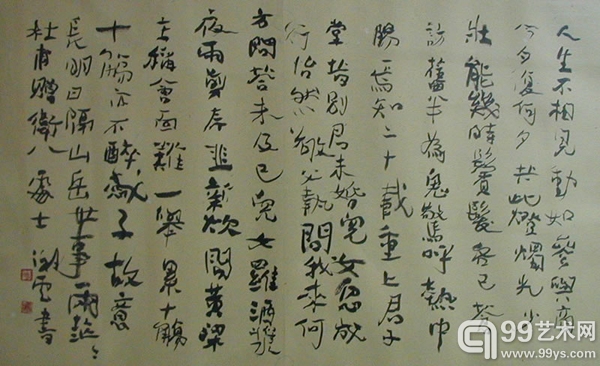 人生不相見動如參與商
今夕復何夕共此燈燭光少
壯能幾時鬢髮各已蒼
訪舊半為鬼驚呼熱中
腸焉知二十載重上君子
堂昔別君未婚兒女忽成
行怡然敬父執問我來何
方問答未及已兒女羅酒漿
夜雨剪春韭新炊間黃粱
主稱會面難一舉累十觴
十觴亦不醉感子故意
長明日隔山岳世事兩茫々
杜甫贈衛八處士 謝雲書
99艺术网
www.99ys.com